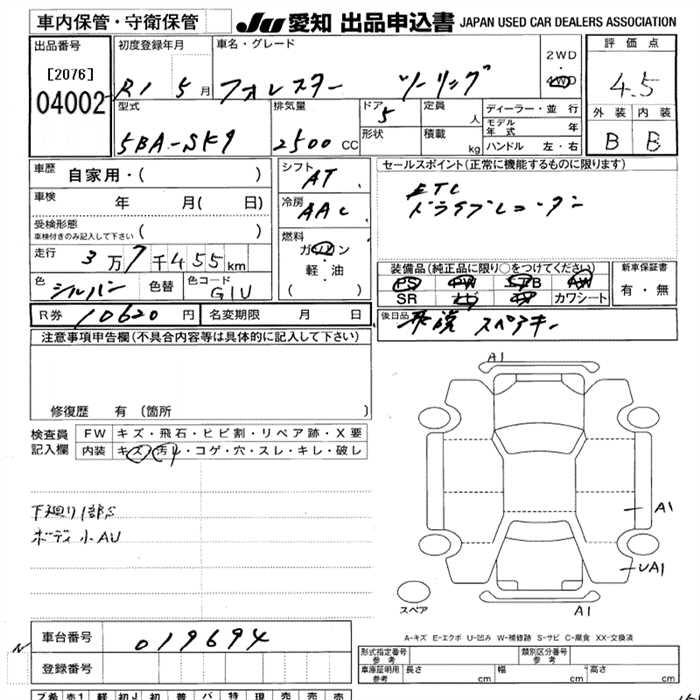 車内保管・守衛保管 JU 愛知 出品申込書 JAPAN USED CAR DEALERS ASSOCIATION
出品番号 初度登録年月 車名・グレード 2WD 評価点
[2076] R1 5月 フォレスター ツーリング ・ 4WD 4.5
04002 型式 排気量 ドア 定員 ディーラー・並行 外装 内装
5 人 モデル年式 年
5BA-SK9 2500 CC 形状 積載 kg ハンドル 左・右 B B
車歴 自家用・( ) シフト AT セールスポイント(正常に機能するものに限ります)
車検 年 月( 日) 冷房 AAC ETC
ドライブレコーダー
受検形態 車検付きのみ記入して下さい ( ) 燃料 ガソリン
走行 3万7千455km ・ 軽・油 装備品(純正品に限り○をつけてください) 新車保証書
色 シルバー 色替 色コード G1U ( ) PS PW SRB AW 有・無
SR カワシート
R券 10620円 名変期限 月 日 後日品 スペアキー
注意事項申告欄(不具合内容等は具体的に記入して下さい)
A1
修復歴 有(箇所 )
検査員 FW キズ・飛石・ヒビ割・リペア跡・X要
記入欄 内装 キズ・汚レ・コゲ・穴・スレ・キレ・破レ
A1
下廻り1部S
ボディ小AU
UA1
スペア A1
車台番号 019694 A-キズ E-エクボ U-凹み W-補修跡 S-サビ C-腐食 XX-交換済
N
登録番号 形式指定番号 参考 類別区分番号 参考
車庫証明用 参考 長さ cm 幅 cm 高さ cm